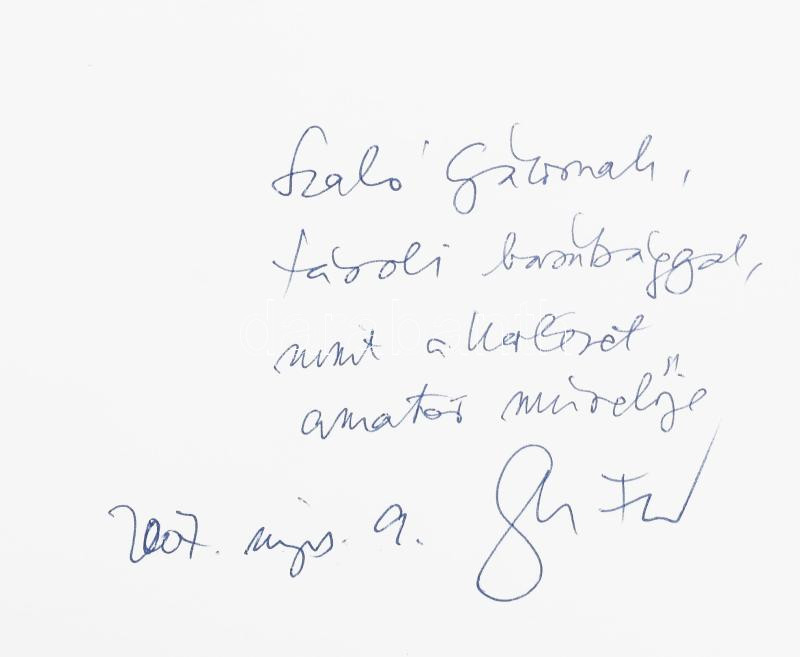 Szabó Gábornak,
távoli barátsággal,
mint a
amatőr művelője
2007. májs. 9.